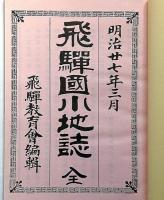 明治廿七年三月
飛驒國小地誌 全
飛驒教育會編輯